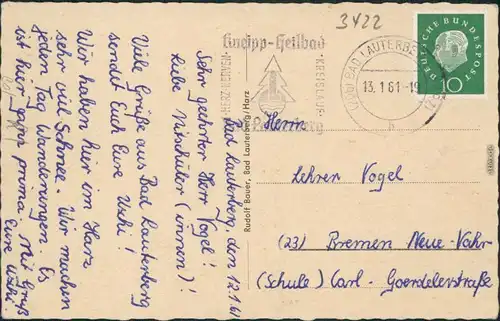 3422
Kneipp-Heilbad
HERZ-NERVEN-
KREISLAUF-
Bad Lauterberg
BAD LAUTERBE
13.1.61-19
h
DEUTSCHE BUNDESPOST
10
Bad Lauterberg, den 12.1.61
Sehr geehrter Herr Vogel!
Liebe Mitschüler (innen)!
Viele Grüße aus Bad Lauterberg
sendet Euch Eure Uschi!
Wir haben hier im Harz
sehr viel Schnee. Wir machen
jeden Tag Wanderungen. Es
ist hier ganz prima. Mit Gruß
Eure Uschi
Rudolf Bauer, Bad Lauterberg/Harz
Herrn
Lehrer Vogel
(23) Bremen Neue-Vahr
(Schule) Carl-Goerdelerstraße